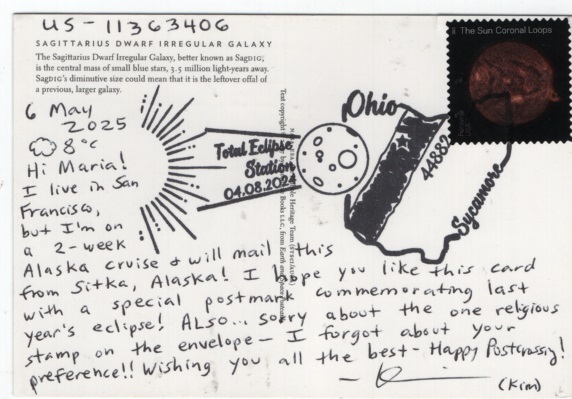 US-11363406
SAGITTARIUS DWARF IRREGULAR GALAXY
The Sagittarius Dwarf Irregular Galaxy, better known as SagDIG,
is the central mass of small blue stars, 3.5 million light-years away.
SagDIG's diminutive size could mean that it is the leftover offal of
a previous, larger galaxy.
The Sun Coronal Loops
6 May
2025
8°C
Hi Maria!
I live in San
Francisco,
but I'm on
a 2-week
Alaska cruise & will mail this
from Sitka, Alaska! I hope you like this card
with a special postmark commemorating last
year's eclipse! ALSO... sorry about the one religious
stamp on the envelope - I forgot about your
preference!! Wishing you all the best - Happy Postcrossing!
(Kim)
Total Eclipse
Station
04.08.2024
Ohio
44882
Sycamore
Text copyright
Heritage Team
Books LLC, from Earth and